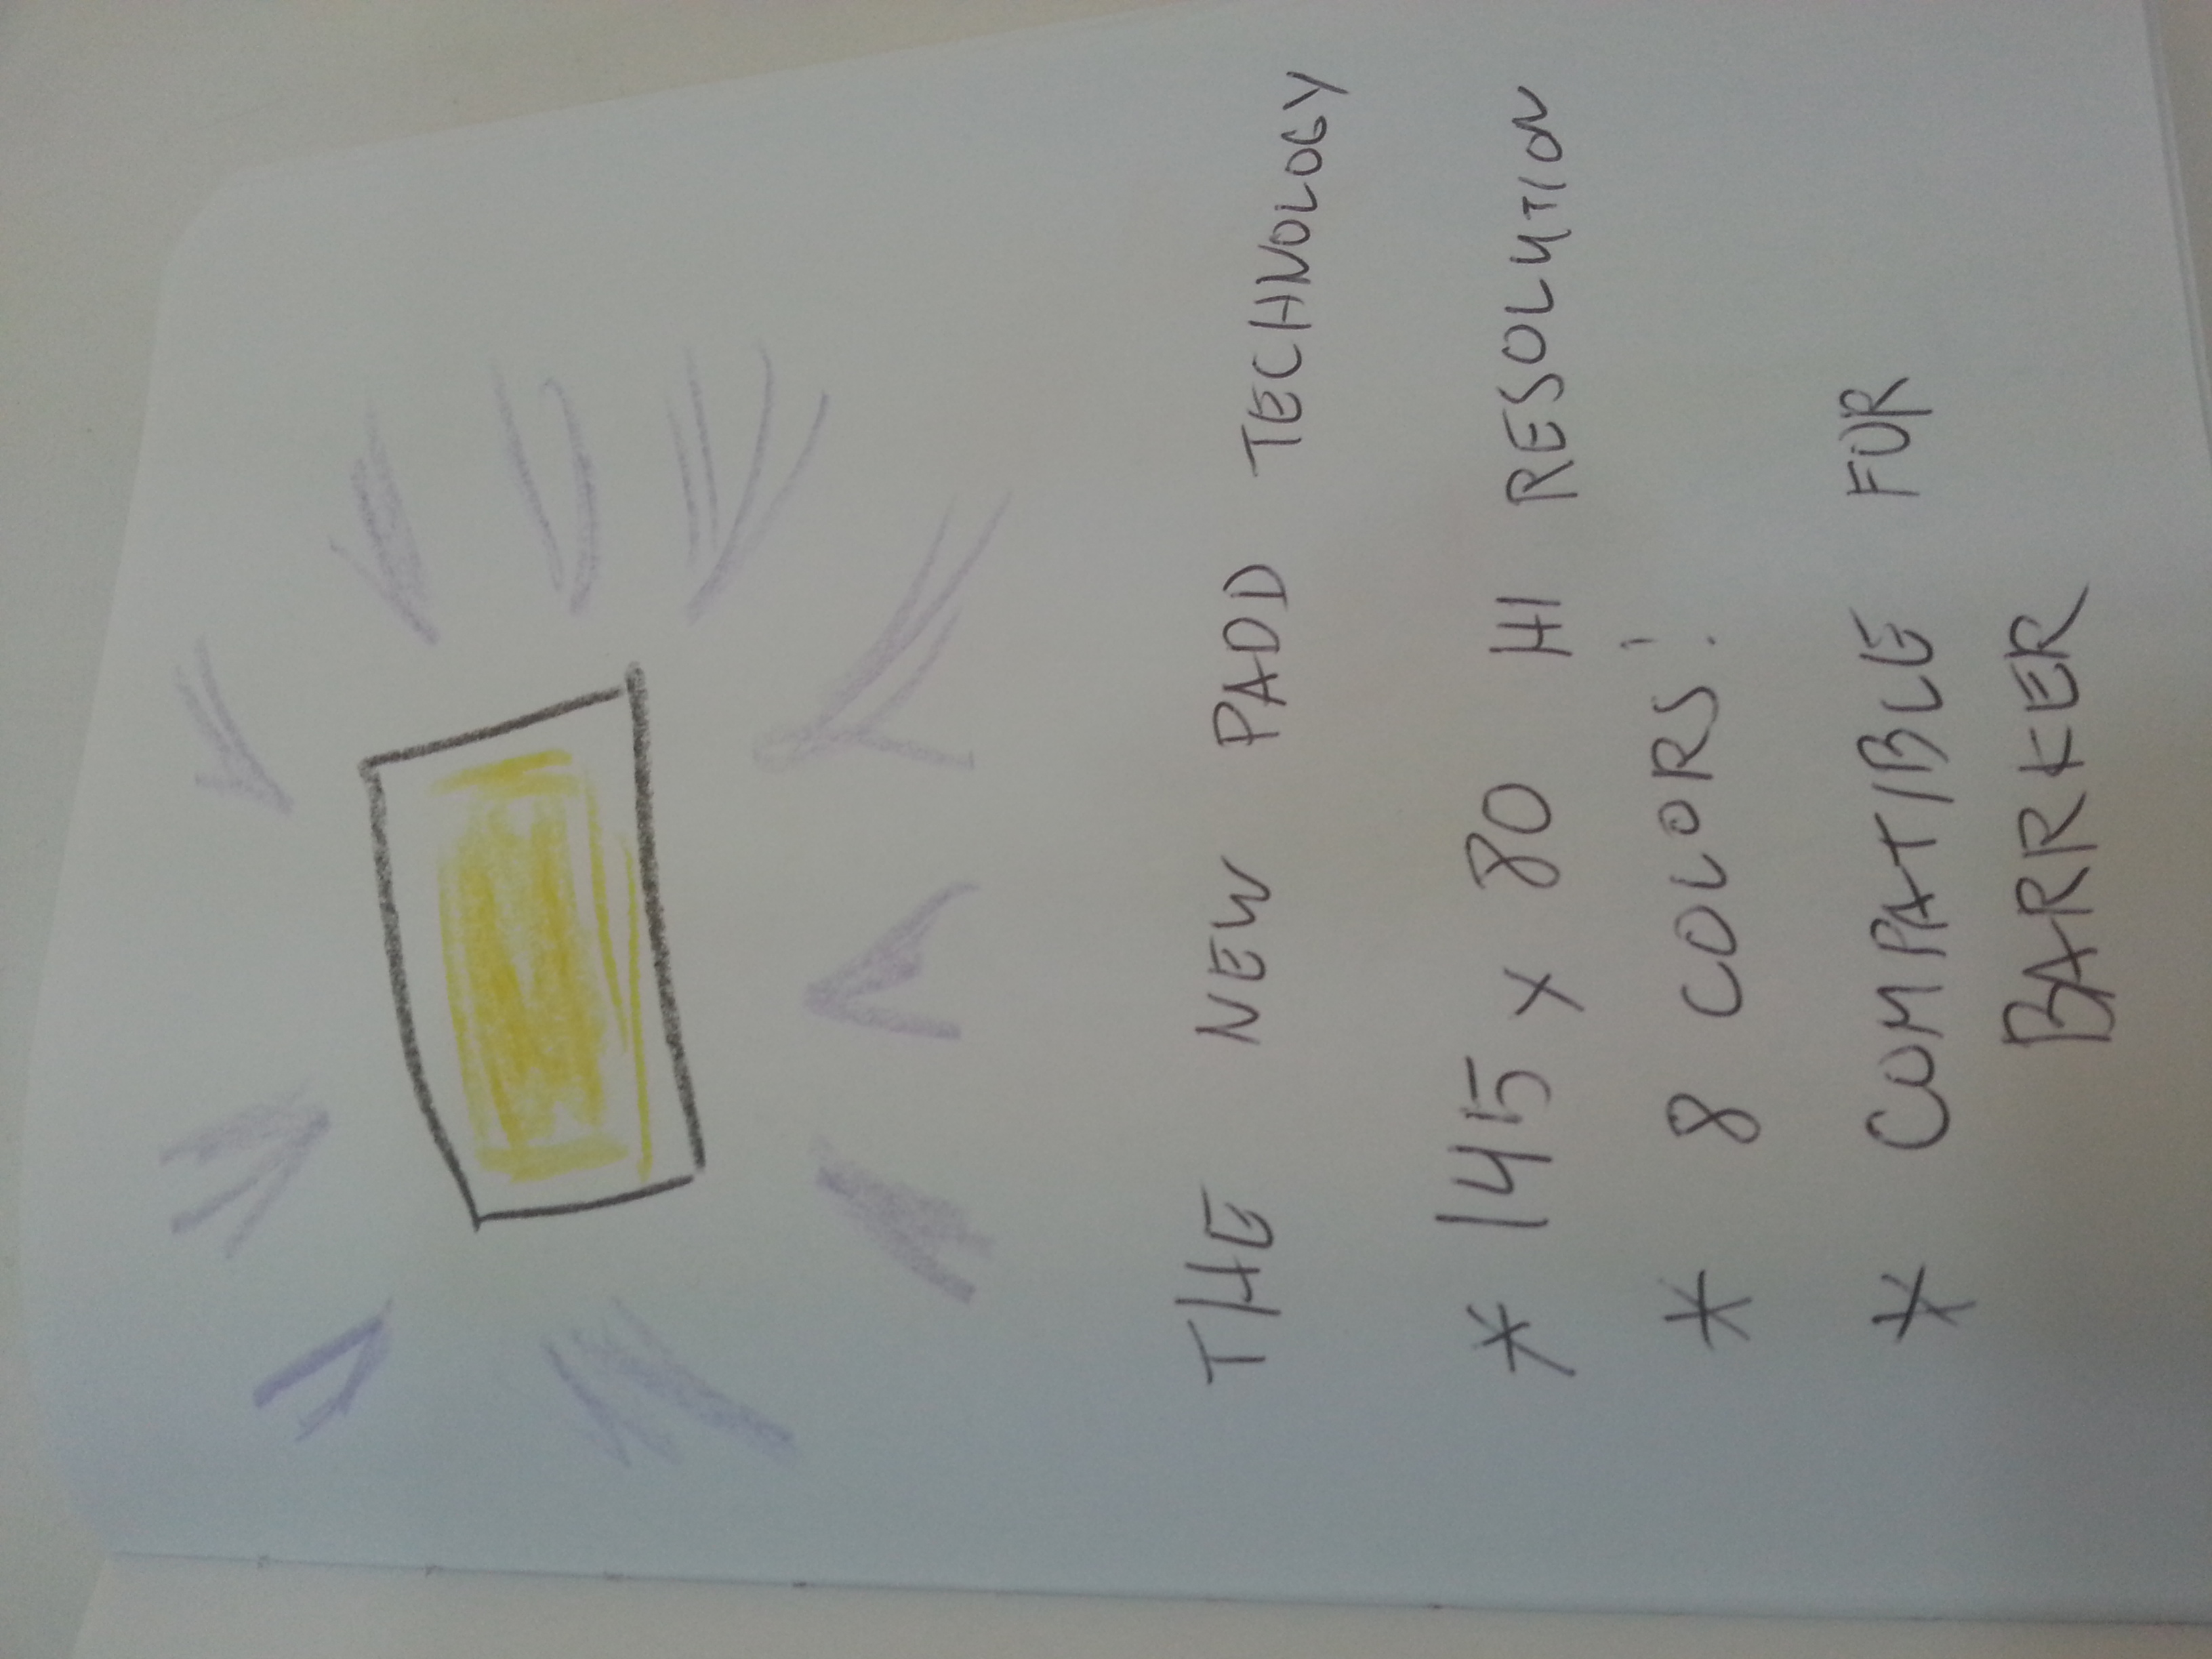 THE NEW PADD TECHNOLOGY
* 145 x 80 HI RESOLUTION
* 8 COLORS!
* COMPATIBLE FOR
BARRKER